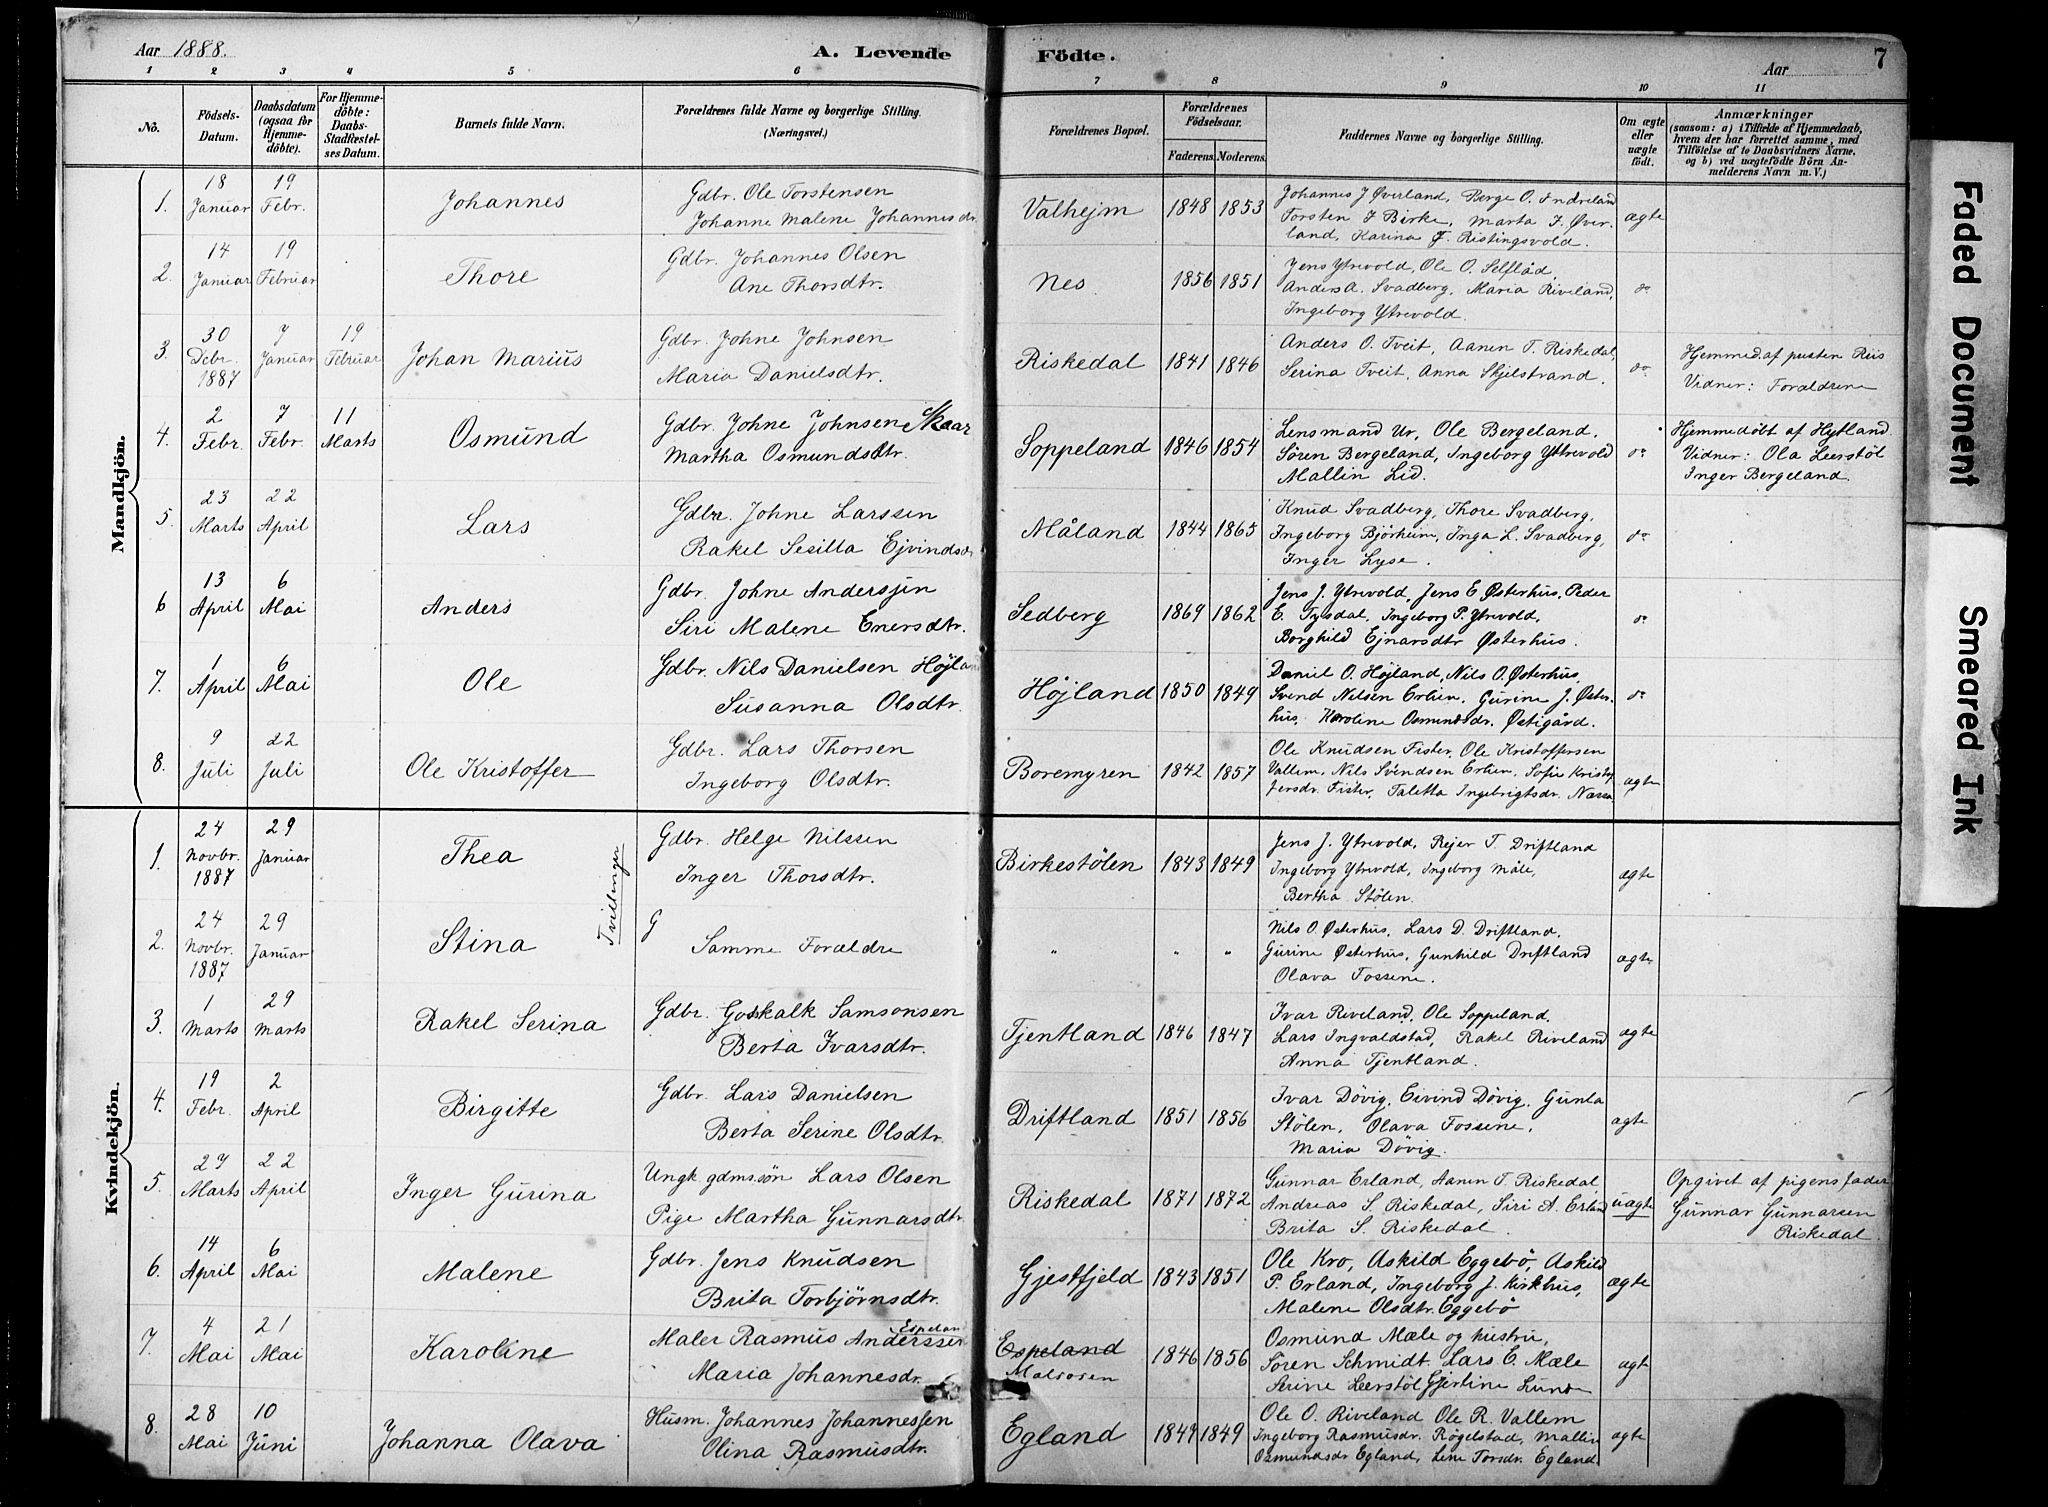 Aar 1888.
A. Levende Födte.
Aar
7
1 2 3 4 5 6 7 8 9 10 11
No.
Födsels-Datum.
Daabsdatum (ogsaa for Hjemme-döbte).
For Hjemme-döbte: Daabs-Stadfæstel-ses Datum.
Barnets fulde Navn.
Forældrenes fulde Navne og borgerlige Stilling.
(Næringsvei.)
Forældrenes Bopæl.
Forældrenes Födselsaar.
Faderens. Moderens.
Faddernes Navne og borgerlige Stilling.
Om ægte eller uægte födt.
Anmærkninger
(saasom: a) i Tilfælde af Hjemmedaab, hvem der har forrettet samme, med Tilföielse af to Daabsvidners Navne, og b) ved uægtefödte Börn An-melderens Navn m. V.)
Mandkjön.
1. 18 Januar 19 Febr. Johannes
Gdbr. Ole Torstensen
Johanne Malene Johannesdr.
Valhejm 1848 1853
Johannes J Øverland, Berge O.
Torsten J Birke, Marta J. Øver-
land, Karina Ristingsvold.
ægte
2. 14 Januar 19 Februar Thore
Gdbr. Johannes Olsen
Ane Thorsdtr.
Nes 1856 1851
Jens Ytrevold, Ole O.
Anders A. Svadberg, Maria Riveland,
Ingeborg Ytrevold.
do
3. 30 Debr. 1887 7 Januar 19 Februar Johan Marius
Gdbr. Johne Johnsen
Maria Danielsdtr.
Riskedal 1841 1846
Anders O. Tveit, Aanen T. Riskedal,
Serina Tveit, Anna Skjelstrand.
do
Hjemmed. af pasten Riis
Vidner: Forældrene
4. 2 Febr. 7 Febr. 11 Marts Osmund
Gdbr. Johne Johnsen Skaar
Martha Osmundsdtr.
Soppeland 1846 1854
Lensmand Ur, Ole Bergeland,
Søren Bergeland, Ingeborg Yttrevold
Mallin Lid.
do
Hjemmedöbt af Hytland
Vidner: Ola Leerstöl
Inger Bergeland.
5. 23 Marts 22 April Lars
Gdbr. Johne Larssen
Rakel Sesilla Ejvindsd
Måland 1844 1865
Knud Svadberg, Thore Svadberg,
Ingeborg Bjórheim, Inga L. Svadberg,
Inger Lyse.
do
6 13 April 6 Mai Anders
Gdbr. Johne Anderssen
Siri Malene Enersdtr.
Sedberg 1869 1862
Jens J. Ytrevold, Jens E Østerhus, Peder
E. Tysdal, Ingeborg P. Ytrevold,
Borghild Ejnarsdtr Østerhus.
do
7. 1 April 6 Mai Ole
Gdbr. Nils Danielsen Höjland
Susanna Olsdtr.
Höjland 1850 1849
Daniel O. Höjland, Nils O. Østerhus,
Svend Nilsen Erlien, Gurine J. Øster-
hus, Karoline Osmundsdr. Østigård.
do
8. 9 Juli 22 Juli Ole Kristoffer
Gdbr. Lars Thorsen
Ingeborg Olsdtr.
Boremyren 1842 1857
Ole Knudsen Fister, Ole Kristoffersen
Vallem, Nils Svendsen Erlien, Sofie Kristof
fersdr. Fister, Taletta Ingebrigtsdr.
ægte
Kvindekjön.
1. 24 Novbr. 1887 29 Januar Thea
Tvillinger
Gdbr. Helge Nilssen
Inger Thorsdtr.
Birkestölen 1843 1849
Jens J. Ytrevold, Rejer T. Driftland
Ingeborg Ytrevold, Ingeborg Måle,
Bertha Stölen.
ægte
2. 24 Novbr. 1887 29 Januar Stina
G
Samme Forældre
" " "
Nils O. Østerhus, Lars D. Driftland,
Gurine Østerhus, Gunhild Driftland
Olava Fossene.
ægte
3. 1 Marts 29 Marts Rakel Serina
Gdbr. Goskalk Samsonsen
Berta Ivarsdtr.
Tjentland 1846 1847
Ivar Riveland, Ole Soppeland,
Lars Ingvaldstad, Rakel Riveland
Anna Tjentland.
ægte
4. 19 Febr. 2 April Birgitte
Gdbr. Lars Danielsen
Berta Serine Olsdtr.
Driftland 1851 1856
Ivar Dövig, Eivind Dövig, Gunla
Stölen, Olava Fossene,
Maria Dövig.
ægte
5. 27 Marts 22 April Inger Gurina
Ungk gdms.sön Lars Olsen
Pige Martha Gunnarsdtr
Riskedal 1871 1872
Gunnar Erland, Aanen T. Riskedal
Andreas S. Riskedal, Siri A. Erland
Brita S. Riskedal.
uægte
Opgivet af pigens fader
Gunnar Gunnarsen
Riskedal.
6. 14 April 6 Mai Malene
Gdbr. Jens Knudsen
Brita Torbjörnsdtr.
Gjestfjeld 1843 1851
Ole Kro, Askild Eggebö, Askild
P. Erland, Ingeborg J. Kirkhus,
Malene Olsdtr. Eggebö
ægte
7. 4 Mai 21 Mai Karoline
Espeland
Maler Rasmus Anderssen
Maria Johannesdr.
Espeland
1846 1856
Osmund Mæle og hustru,
Sören Schmidt, Lars E. Mæle
Serine Leerstöl Gjertine Lunde
ægte
8. 28 Mai 10 Juni Johanna Olava
Husm. Johannes Johannessen
Olina Rasmusdtr.
Egland 1849 1849
Ole O. Riveland Ole R. Vallem
Ingeborg Rasmusdr. Rögelstad, Mallin
Osmundsdr Egland, Lene Torsdr. Egland.
ægte
Faded Document
Smeared Ink